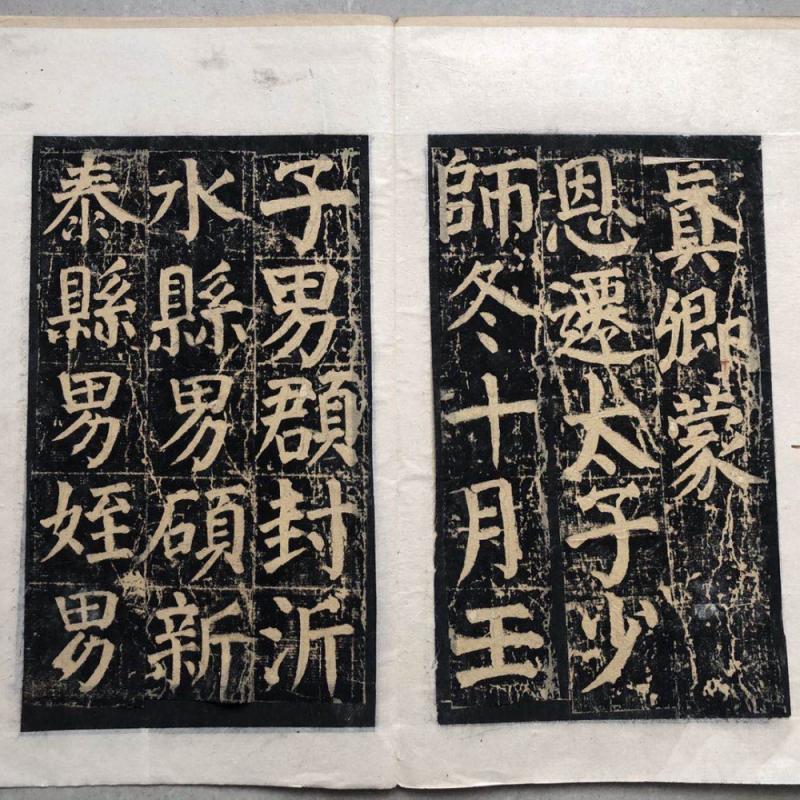 真卿蒙
恩遷太子少
師冬十月壬
子男頵封沂
水縣男碩新
泰縣男姪男